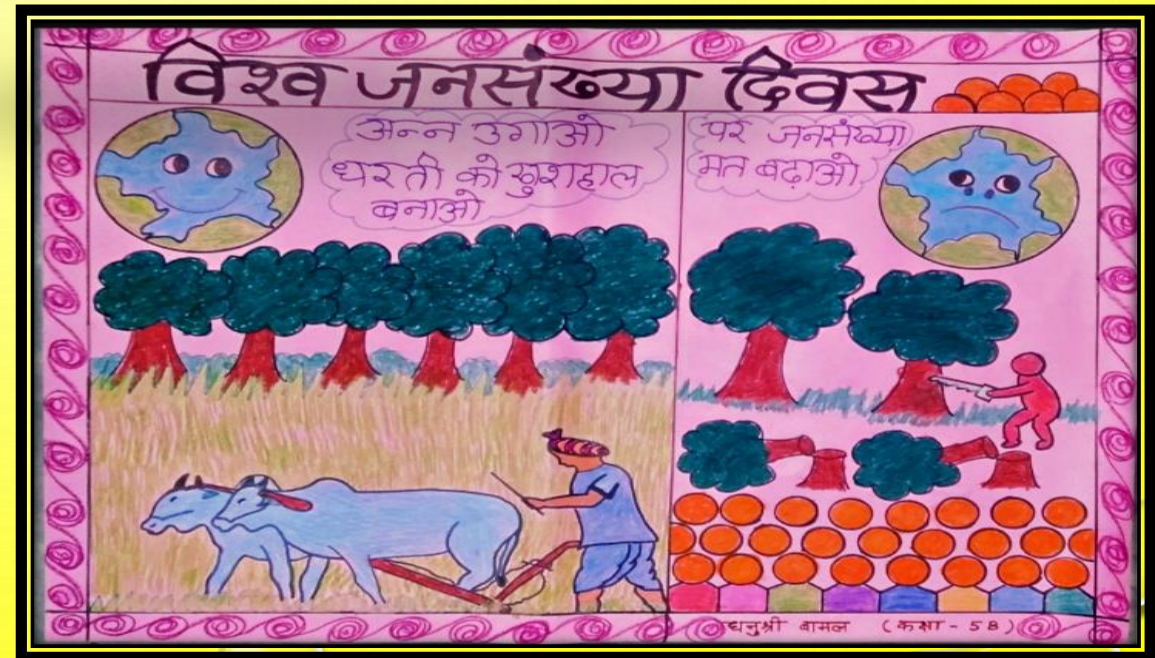 विश्व जनसंख्या दिवस
अन्न उगाओ
धरती को खुशहाल
बनाओ
पर जनसंख्या
मत बढ़ाओ
धनुश्री बामल (कक्षा - 5B)